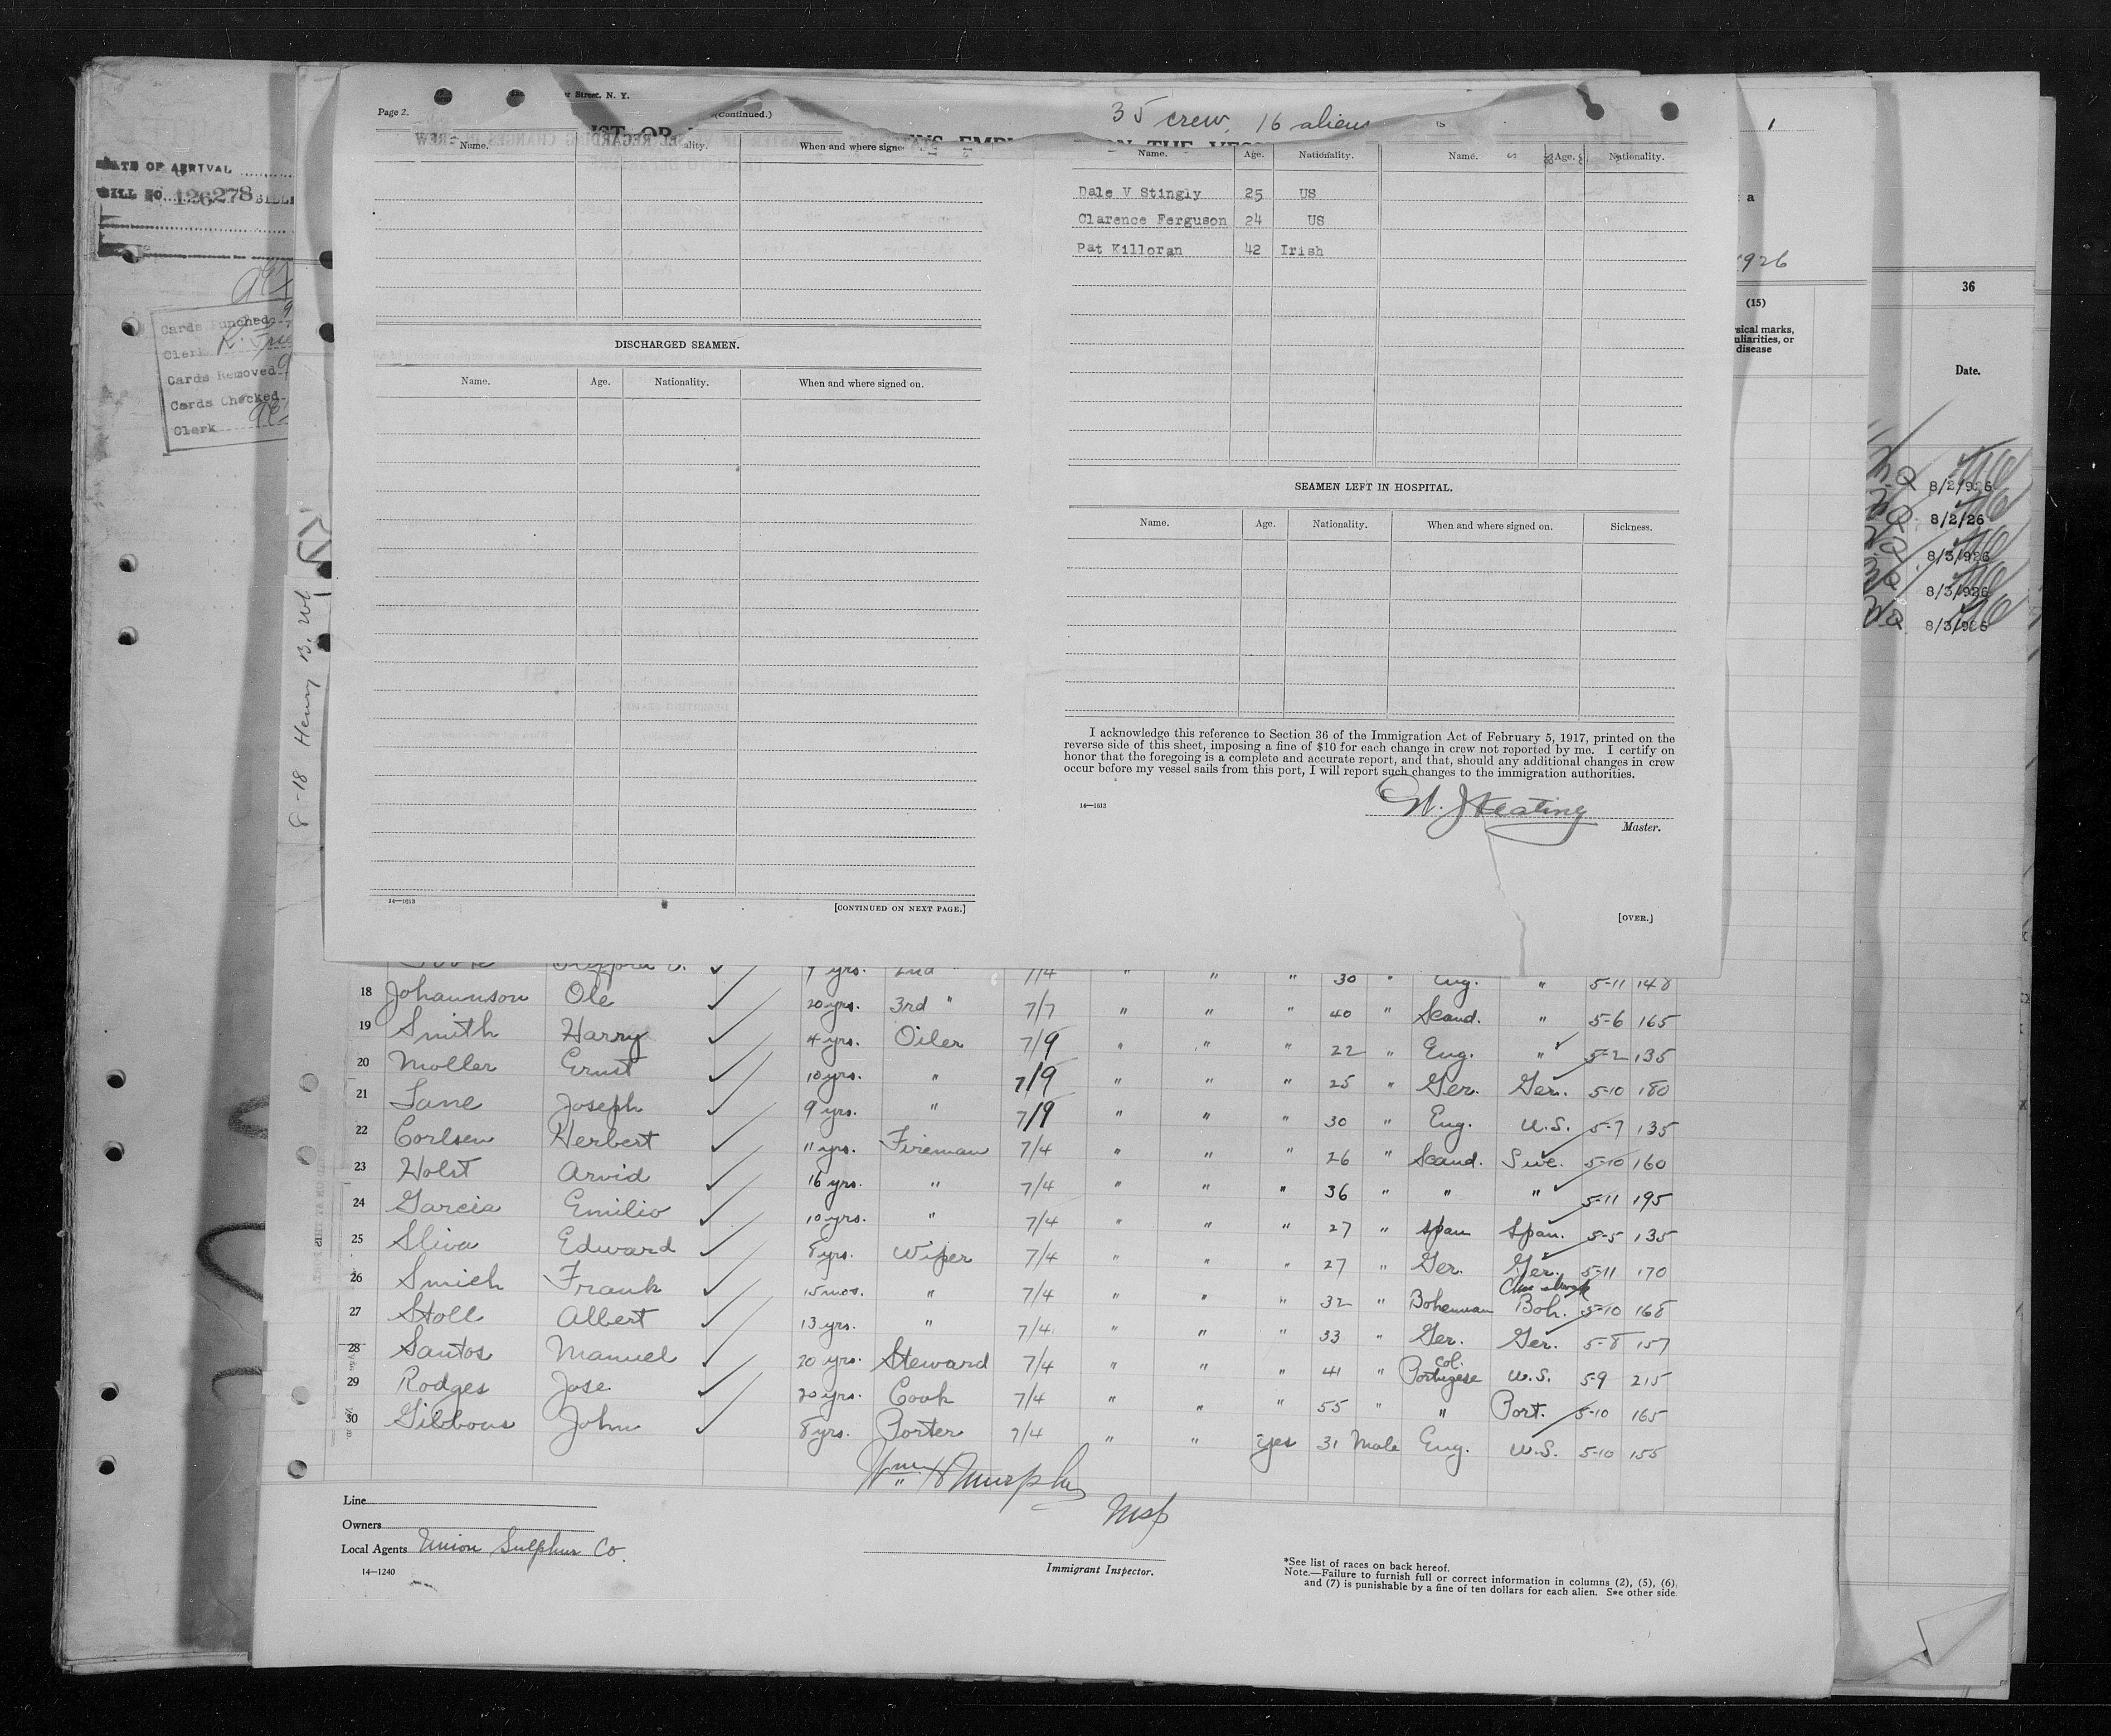 Street. N. Y.
Page 2.
(Continued.)
35 crew, 16 aliens
Name.
When and where signe
Name. Age. Nationality. Name. Age. Nationality.
Dale V Stingly 25 US
Clarence Ferguson 24 US
Pat Killoran 42 Irish
DISCHARGED SEAMEN.
Name. Age. Nationality. When and where signed on.
SEAMEN LEFT IN HOSPITAL.
Name. Age. Nationality. When and where signed on. Sickness.
I acknowledge this reference to Section 36 of the Immigration Act of February 5, 1917, printed on the
reverse side of this sheet, imposing a fine of $10 for each change in crew not reported by me. I certify on
honor that the foregoing is a complete and accurate report, and that, should any additional changes in crew
occur before my vessel sails from this port, I will report such changes to the immigration authorities.
14—1613
W. J Keating
Master.
14—1613
[CONTINUED ON NEXT PAGE.]
[OVER.]
DATE OF ARRIVAL
BILL NO. 126278
Cards Punched
Clerk
Cards Removed
Cards Checked
Clerk
8-18 Henry B.
1
a
1926
(15)
sical marks,
uliarities, or
disease
36
Date.
8/2/926
8/2/26
8/3/926
8/3/926
8/3/926
7 yrs. 2nd " 7/4 " " " 30 " Eng. " 5-11 148
18 Johannson Ole 20 yrs. 3rd " 7/7 " " " 40 " Scand. " 5-6 165
19 Smith Harry 4 yrs. Oiler 7/9 " " " 22 " Eng. " 5-2 135
20 Moller Ernst 10 yrs. " 7/9 " " " 25 " Ger. Ger. 5-10 180
21 Lane Joseph 9 yrs. " 7/9 " " " 30 " Eng. U.S. 5-7 135
22 Corlsen Herbert 11 yrs. Fireman 7/4 " " " 26 " Scand. Swe. 5-10 160
23 Holst Arvid 16 yrs. " 7/4 " " " 36 " " " 5-11 195
24 Garcia Emilio 10 yrs. " 7/4 " " " 27 " Span Span. 5-5 135
25 Sliva Edward 8 yrs. Wiper 7/4 " " " 27 " Ger. Ger. 5-11 170
26 Smich Frank 15 mos. " 7/4 " " " 32 " Bohemian Boh. 5-10 168
27 Stoll Albert 13 yrs. " 7/4 " " " 33 " Ger. Ger. 5-8 157
28 Santos Manuel 20 yrs. Steward 7/4 " " " 41 " Col. Portugese U.S. 5-9 215
29 Rodges Jose 20 yrs. Cook 7/4 " " " 55 " " Port. 5-10 165
30 Gibbons John 8 yrs. Porter 7/4 " " Yes 31 Male Eng. U.S. 5-10 155
Wm H Murphy
Msp
Line
Owners
Local Agents Union Sulphur Co.
14—1240
Immigrant Inspector.
*See list of races on back hereof.
Note.—Failure to furnish full or correct information in columns (2), (5), (6),
and (7) is punishable by a fine of ten dollars for each alien. See other side.